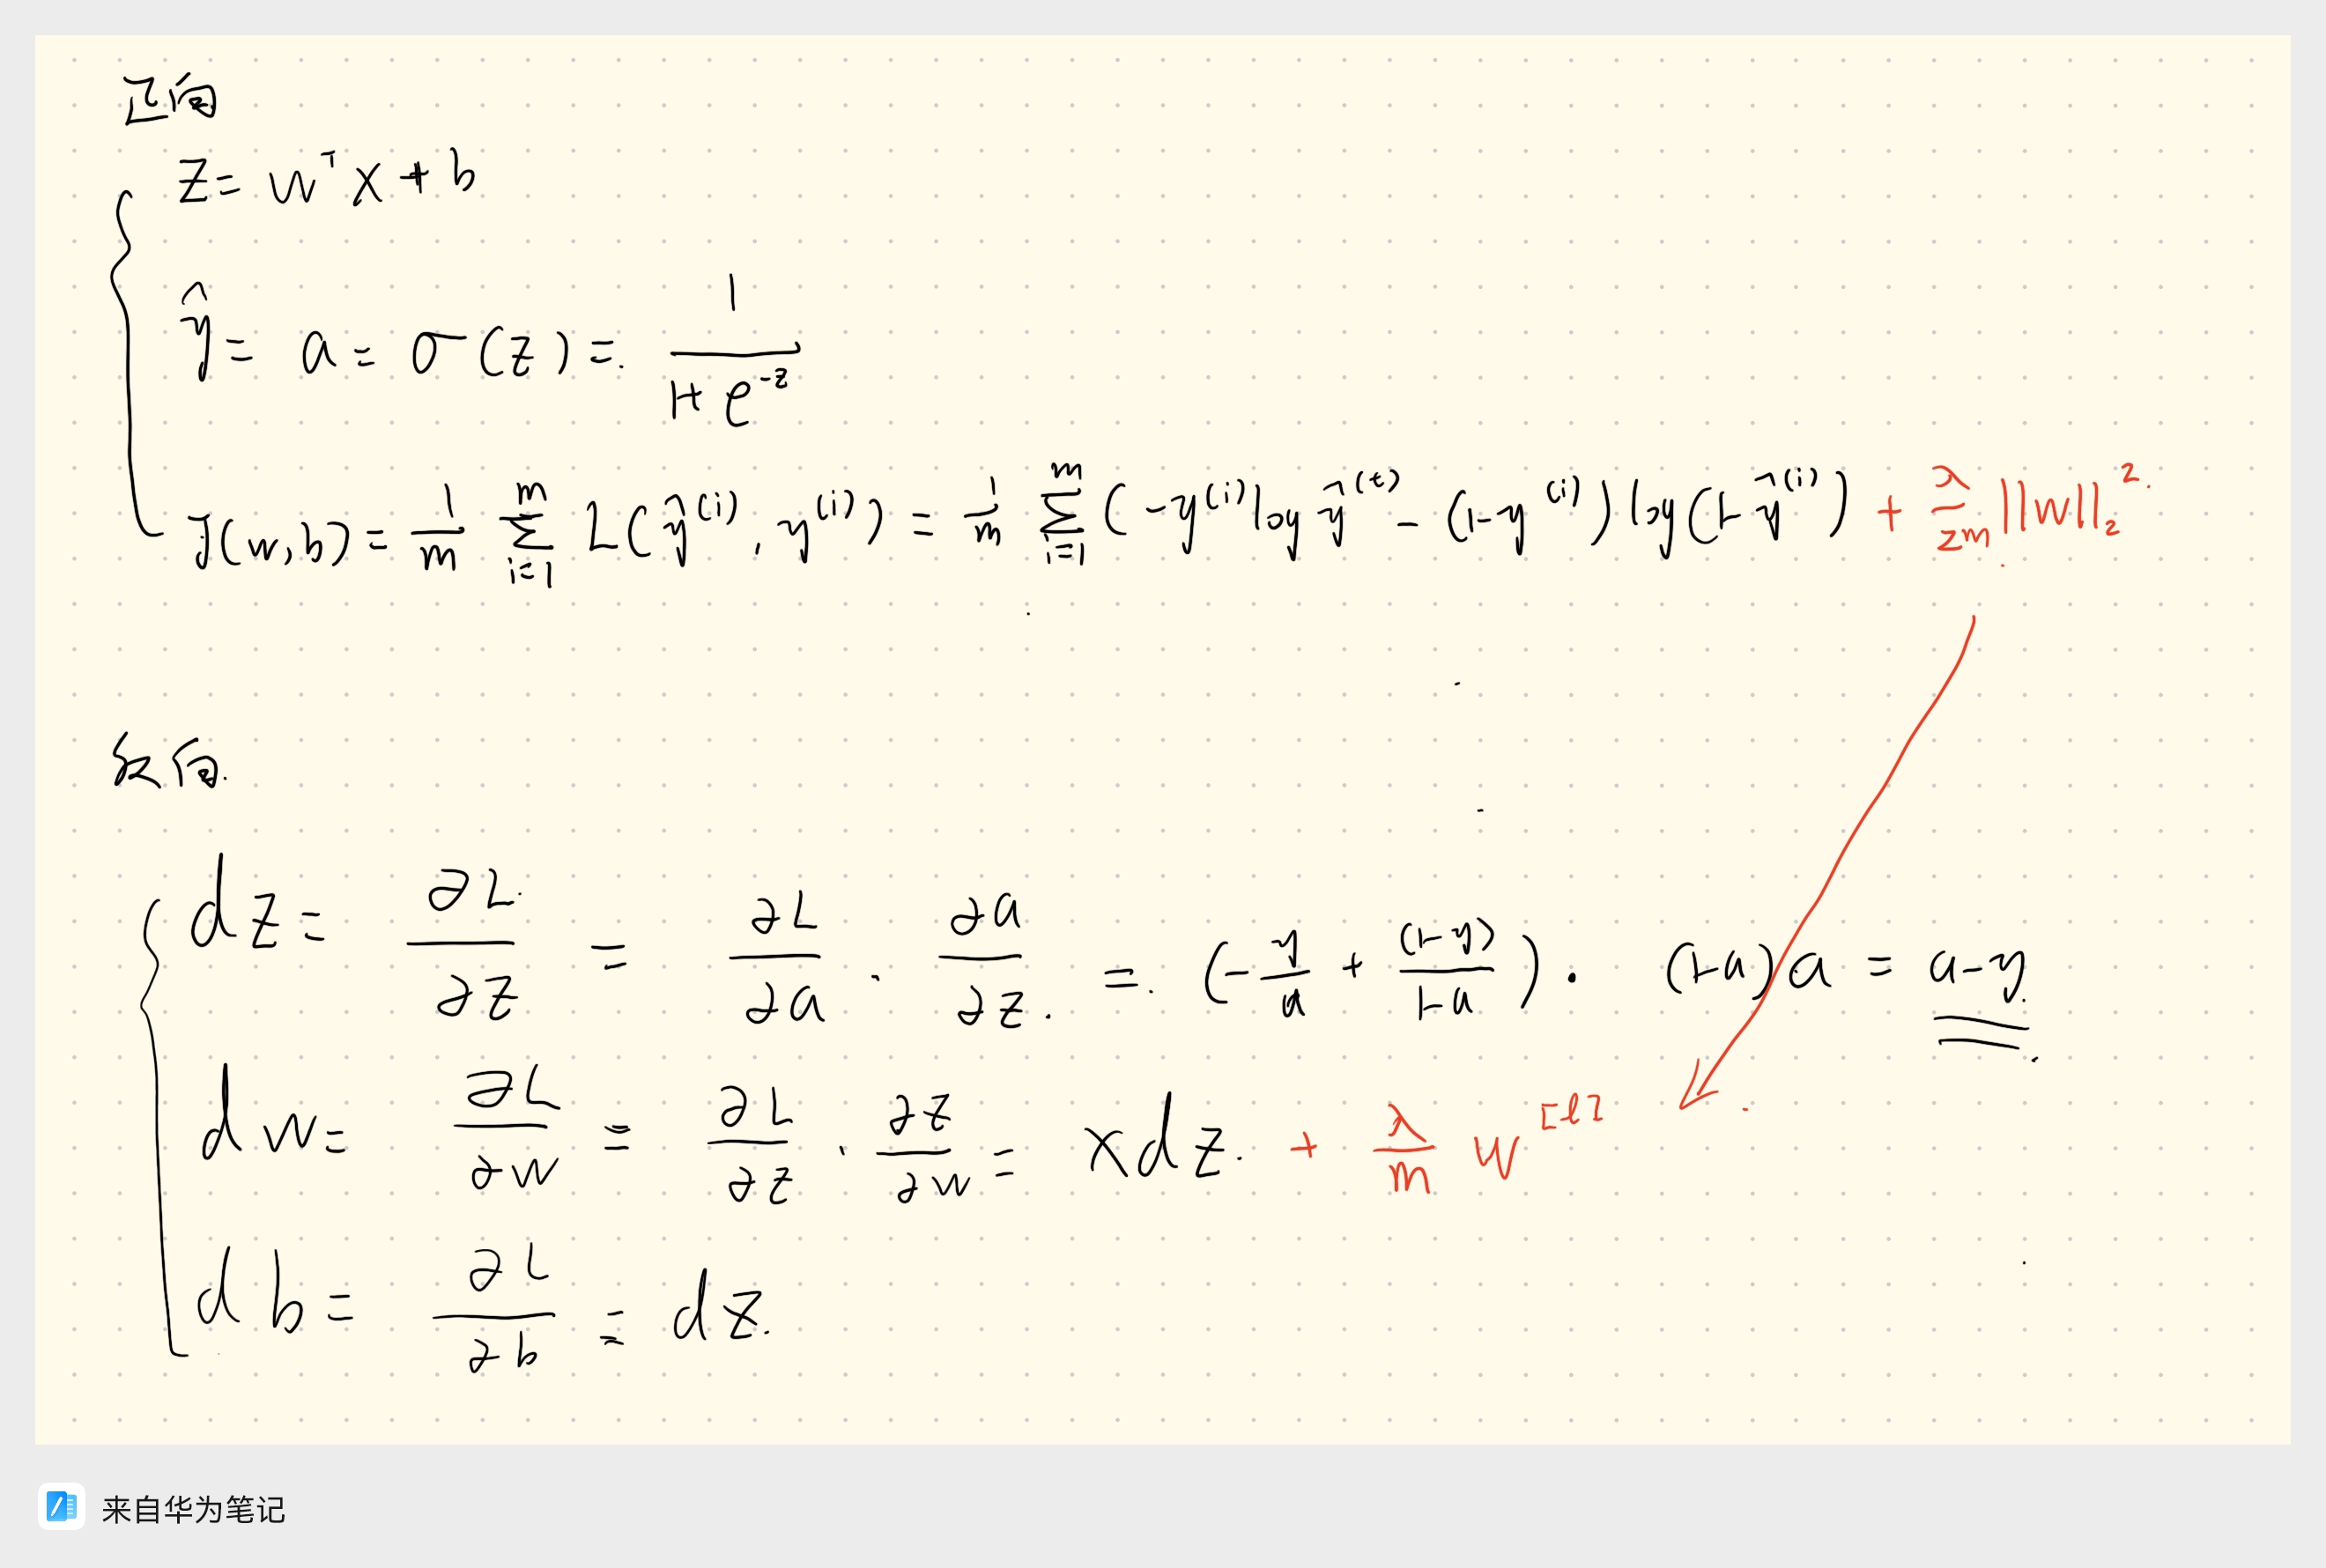 正向
z = w^T x + b
ŷ = a = σ(z) = 1/(1+e^{-z})
J(w,b) = 1/m ∑_{i=1}^{m} L(ŷ^{(i)}, y^{(i)}) = 1/m ∑_{i=1}^{m} (-y^{(i)} log ŷ^{(i)} - (1-y^{(i)}) log(1-ŷ^{(i)})) + λ/2m ||w||_2^2.
反向.
dz = ∂L/∂z = ∂L/∂a · ∂a/∂z. = (-y/a + (1-y)/(1-a)) · (1-a)a = a-y.
dw = ∂L/∂w = ∂L/∂z · ∂z/∂w = xdz. + λ/m w^{[l]}
db = ∂L/∂b = dz.
来自华为笔记